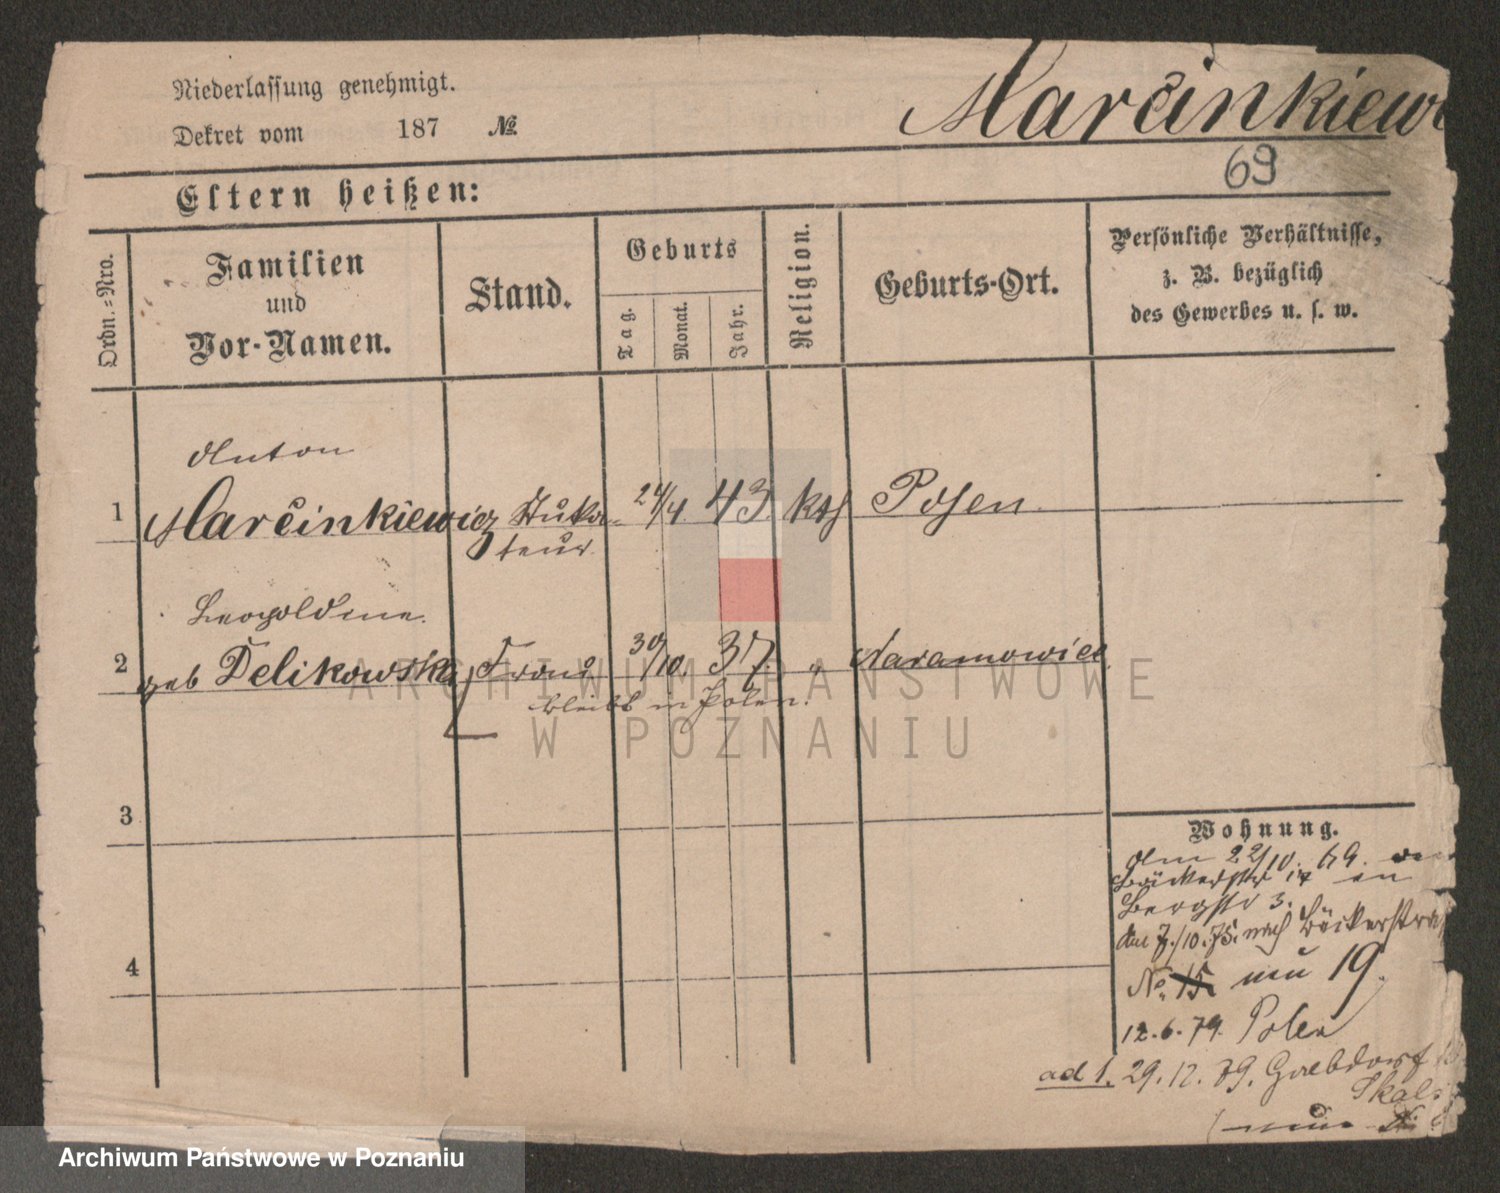 Niederlassung genehmigt.
Dekret vom 187 №
Marcinkiew
69
Eltern heißen:
Ordn.-Nro.
Familien
und
Vor-Namen.
Stand.
Geburts
Tag.
Monat.
Jahr.
Religion.
Geburts-Ort.
Persönliche Verhältnisse,
z. B. bezüglich
des Gewerbes u. s. w.
Anton
1 Marcinkiewicz Stuka- 24/4 43 kth Posen
teur
Leopoldine
2 geb Delikowska Frau 30/10 37. " Naramowice
bleibt in Polen.
3
4
Wohnung.
Am 22/10. 69. von
Bäckerstr 17 en
Bergstr 3.
Am 7./10. 75. nach Bäckerstra
No. 15. neu 19.
12.6.79. Polen
ad 1. 29.12.79.
ARCHIWUM PAŃSTWOWE
W POZNANIU
Archiwum Państwowe w Poznaniu